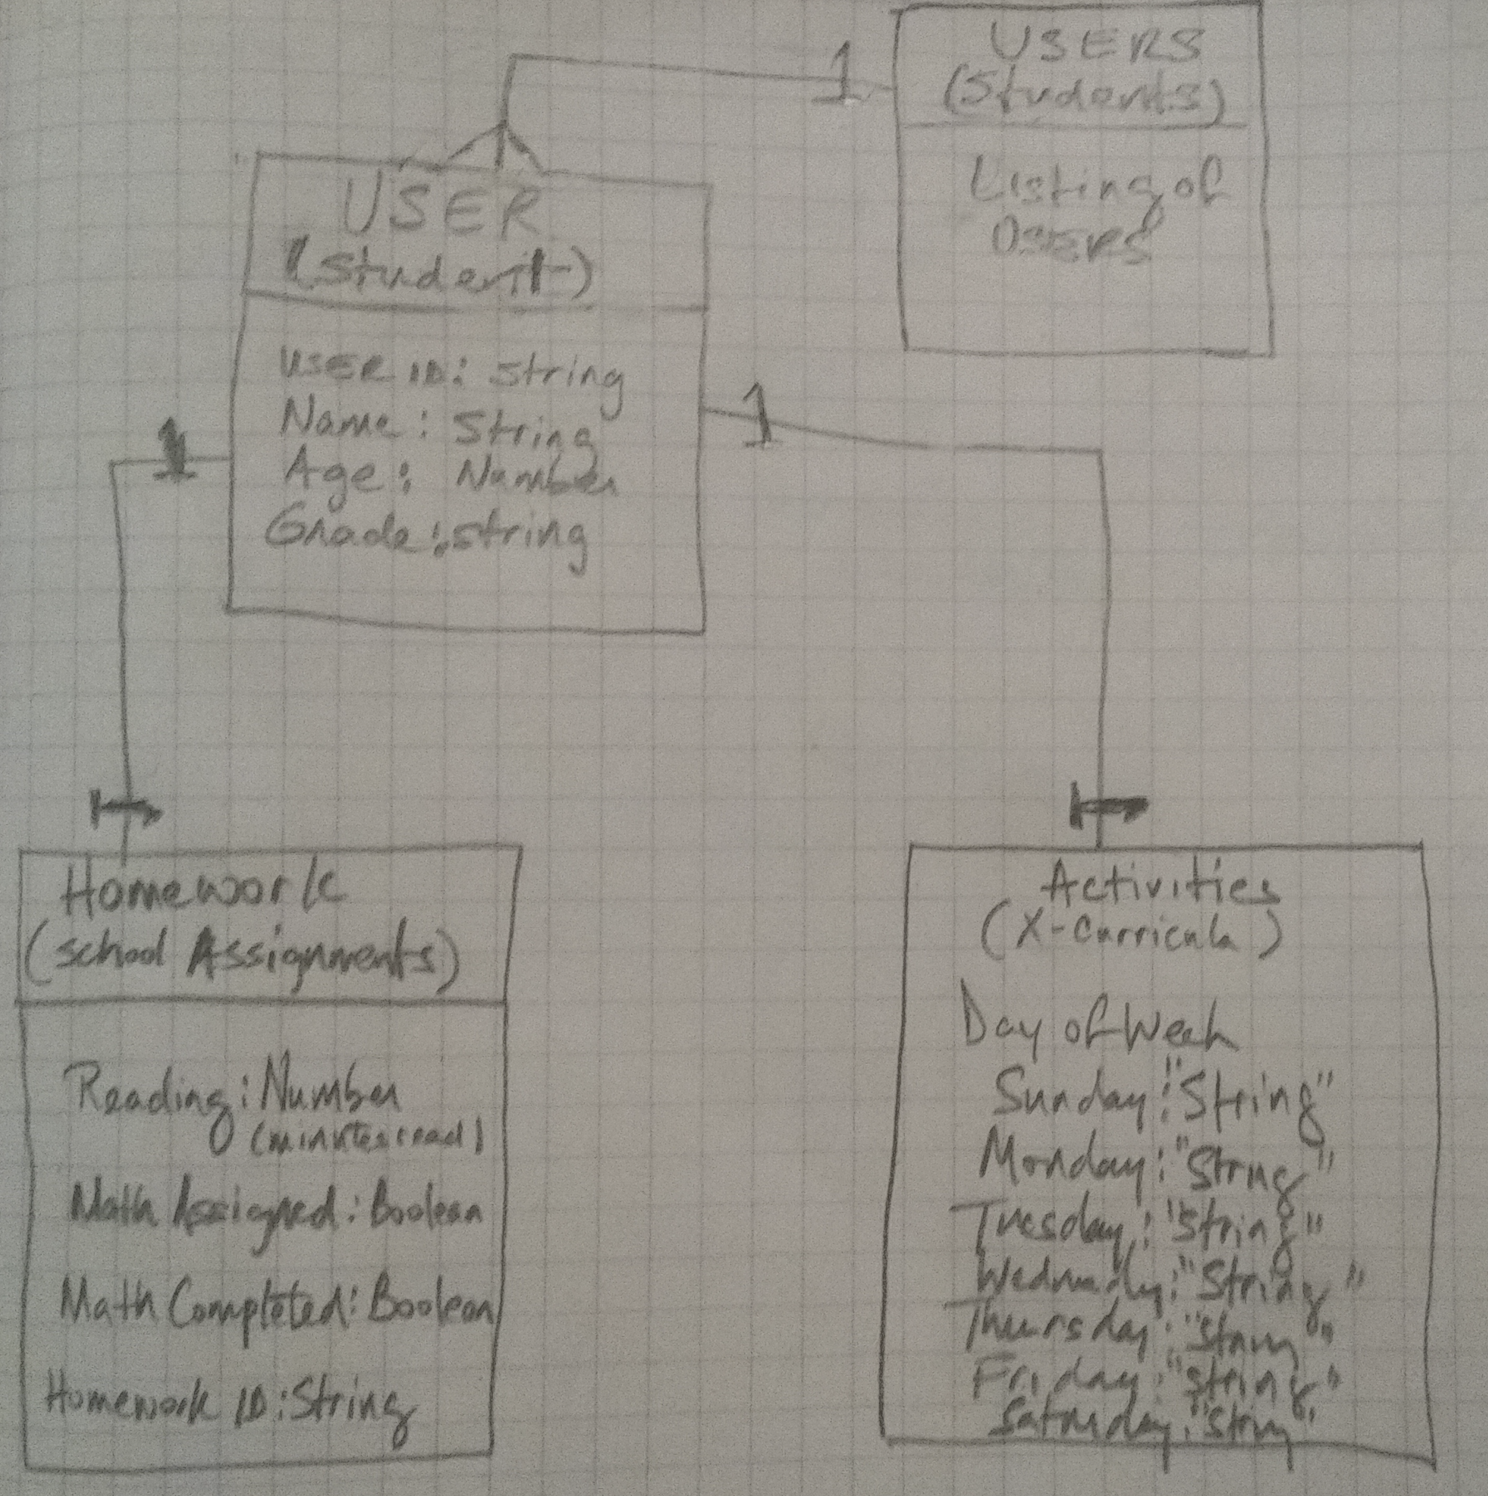 1
USERS
(Students)
Listing of
USERS
USER
(Student)
USER ID: String
Name: String
Age: Number
Grade: String
1
1
Homework
(school Assignments)
Reading: Number
(minutes read)
Math Assigned: Boolean
Math Completed: Boolean
Homework ID: String
1
1
Activities
(X-Curricula)
Day of Week
Sunday: "String"
Monday: "Strng"
Tuesday: "String"
Wednesday: "String"
Thursday: "String"
Friday: "String"
Saturday: "String"